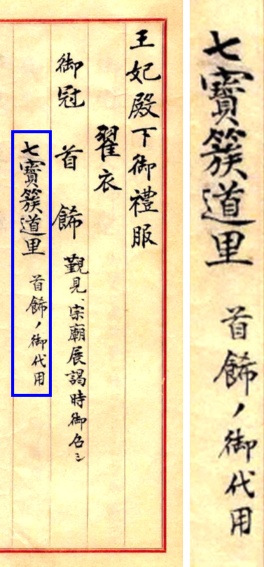 王妃殿下御禮服
翟衣
御冠 首飾 覲見、宗廟展謁時御召シ
七寶簇道里 首飾ノ御代用
七寶簇道里 首飾ノ御代用